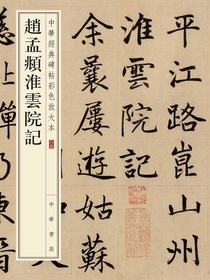 平江路崑山
淮雲院記
余曩屢遊姑蘇
中華經典碑帖彩色放大本
趙孟頫淮雲院記
中華書局